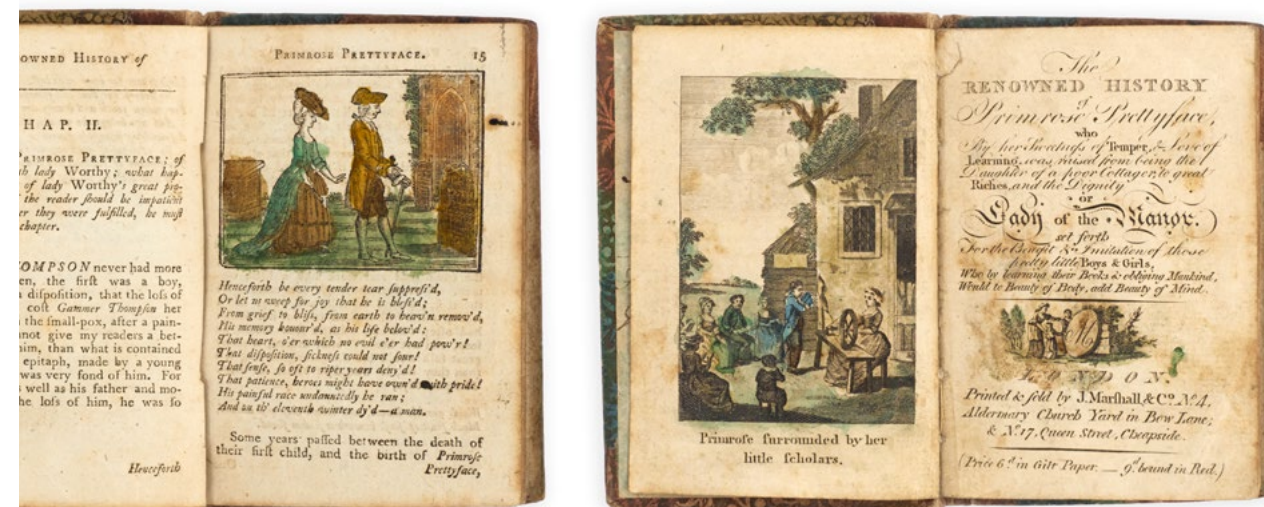 OWNED HISTORY of
HAP. II.
PRIMROSE PRETTYFACE; of
lady Worthy; what hap-
of lady Worthy's great pro-
the reader ſhould be impatient
er they were fulfilled, he muſt
chapter.
OMPSON never had more
en, the firſt was a boy,
diſpoſition, that the loſs of
coſt Gammer Thompſon her
the ſmall-pox, after a pain-
not give my readers a bet-
him, than what is contained
epitaph, made by a young
was very fond of him. For
well as his father and mo-
he loſs of him, he was ſo
Henceforth
PRIMROSE PRETTYFACE. 15
Henceforth be every tender tear ſuppreſs'd,
Or let us weep for joy that he is bleſs'd;
From grief to bliſs, from earth to heav'n remov'd,
His memory honour'd, as his life belov'd:
That heart, o'er which no evil e'er had pow'r!
That diſpoſition, ſickneſs could not ſour!
That ſenſe, ſo oft to riper years deny'd!
That patience, heroes might have own'd with pride!
His painful race undauntedly he ran;
And in th' eleventh winter dy'd—a man.
Some years paſſed between the death of
their firſt child, and the birth of Primroſe
Prettyface,
Primroſe ſurrounded by her
little ſcholars.
The
RENOWNED HISTORY
of
Primrose Prettyface,
who
By her Sweetneſs of Temper, & Love of
Learning, was raised from being the
Daughter of a poor Cottager, to great
Riches, and the Dignity
of
Lady of the Manor.
set forth
For the Benefit & Imitation of those
pretty little Boys & Girls,
Who by learning their Books & obliging Mankind,
Would to Beauty of Body, add Beauty of Mind.
LONDON.
Printed & ſold by J. Marſhall, & Co. No. 4,
Aldermary Church Yard in Bow Lane;
& No. 17. Queen Street, Cheapside.
(Price 6d. in Gilt Paper. — 9d. bound in Red.)